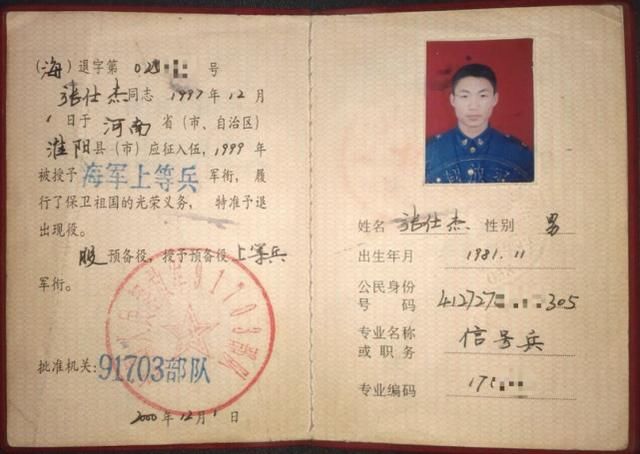 （海）退字第 025 号
张仕杰同志 1997年12月
1日于 河南 省（市、自治区）
淮阳县（市）应征入伍，1999年
被授予 海军上等兵 军衔，履
行了保卫祖国的光荣义务，特准予退
出现役。
服预备役，授予预备役上等兵
军衔。
批准机关：91703部队
2000年12月1日
91703部队
姓名 张仕杰 性别 男
出生年月 1981.11
公民身份
号码 412727 305
专业名称
或职务 信号兵
专业编码 175